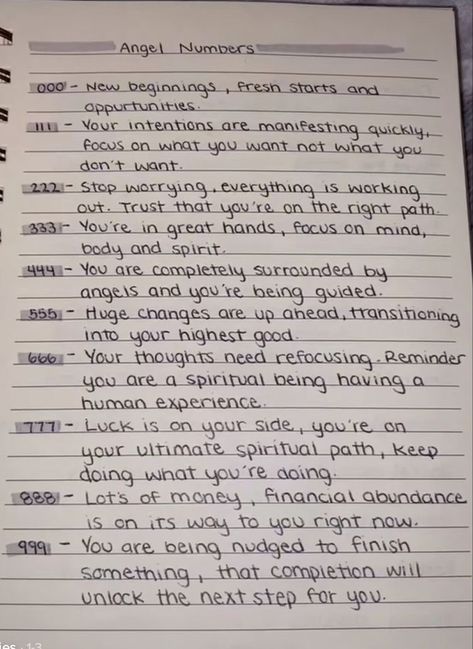 Angel Numbers
000 - New beginnings, fresh starts and
oppurtunities.
111 - Your intentions are manifesting quickly,
focus on what you want not what you
don't want.
222 - Stop worrying, everything is working
out. Trust that you're on the right path.
333 - You're in great hands, focus on mind,
body and spirit.
444 - You are completely surrounded by
angels and you're being guided.
555 - Huge changes are up ahead, transitioning
into your highest good.
666 - Your thoughts need refocusing. Reminder
you are a spiritual being having a
human experience.
777 - Luck is on your side, you're on
your ultimate spiritual path, keep
doing what you're doing.
888 - Lot's of money, financial abundance
is on its way to you right now.
999 - You are being nudged to finish
something, that completion will
unlock the next step for you.